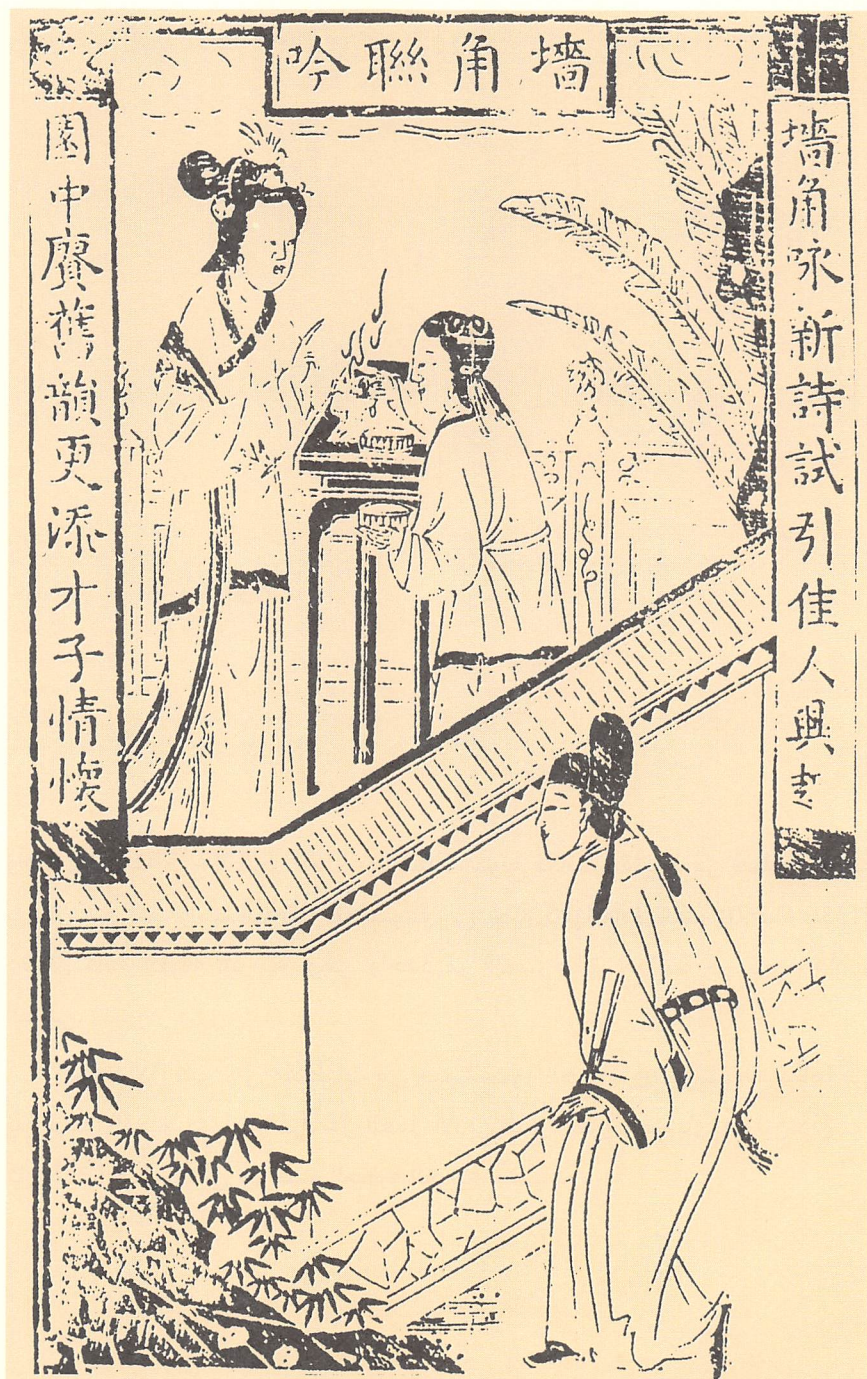 墻角聯吟
墻角咏新詩試引佳人興
園中賡舊韻更添才子情懷